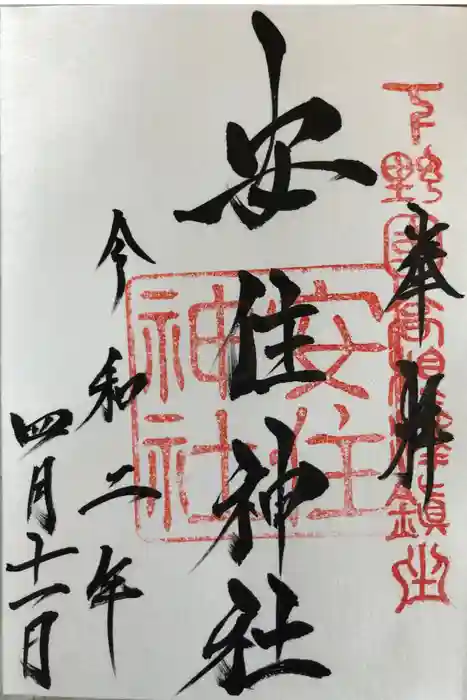 下野國高根澤鎮坐
奉拝
安住神社
安住
神社
令和二年
四月十一日